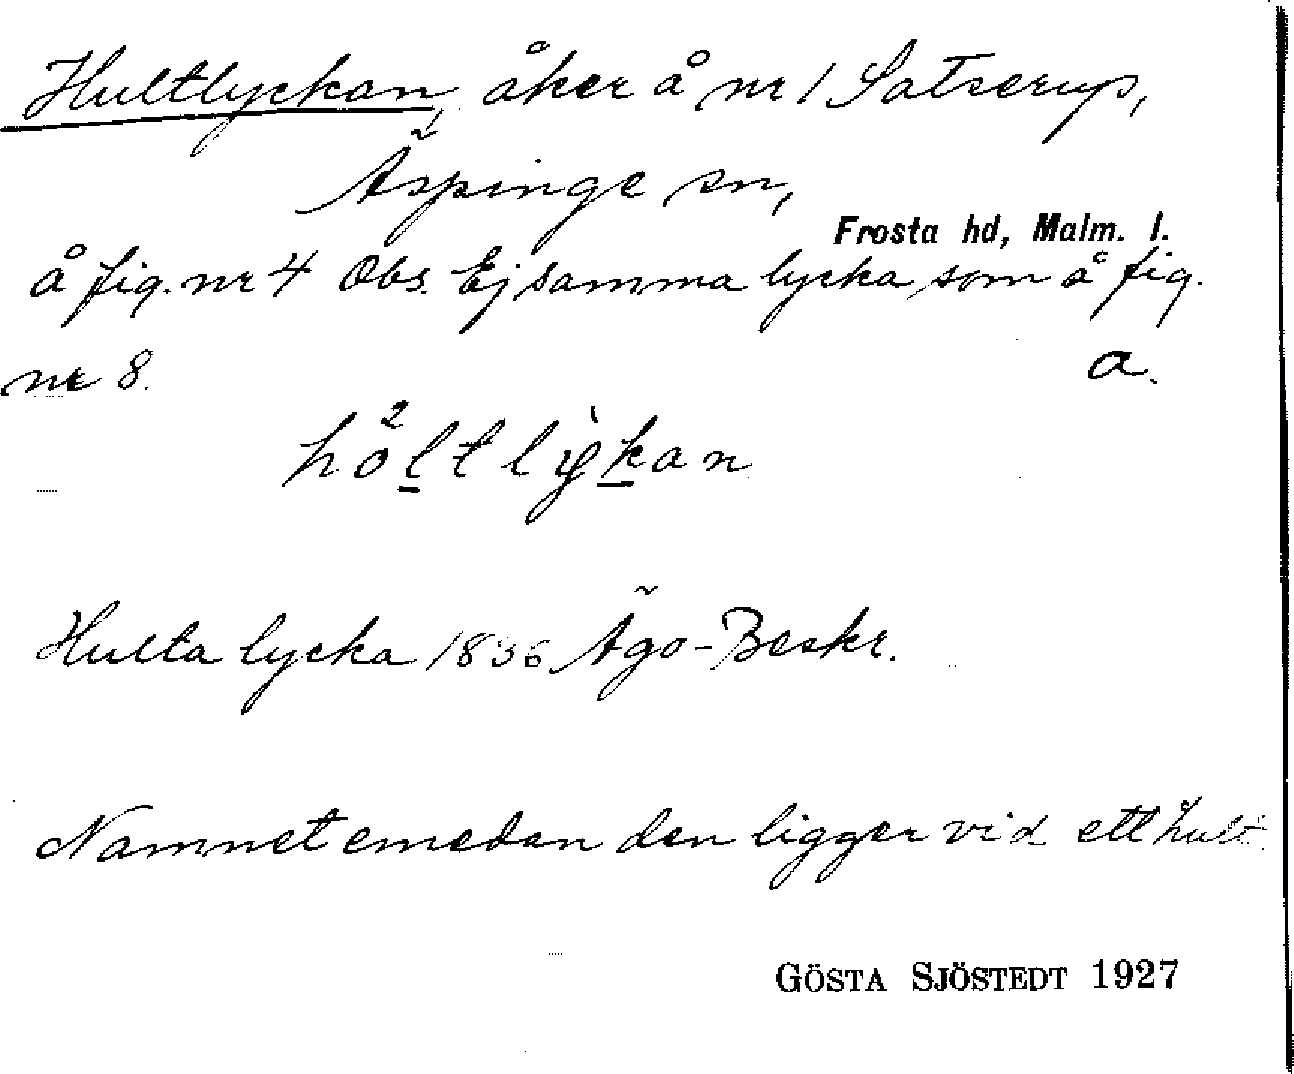 Hultlyckan, åker å nr 1 Satserup,
Äspinge sn,
Frosta hd, Malm. l.
å fig. nr 4 Obs. Ej samma lycka som å fig.
nr 8. a.
hå²ltlỳkan
Hulta lycka 1836 Ägo-Beskr.
Namnet emedan den ligger vid ett hult.
GÖSTA SJÖSTEDT 1927